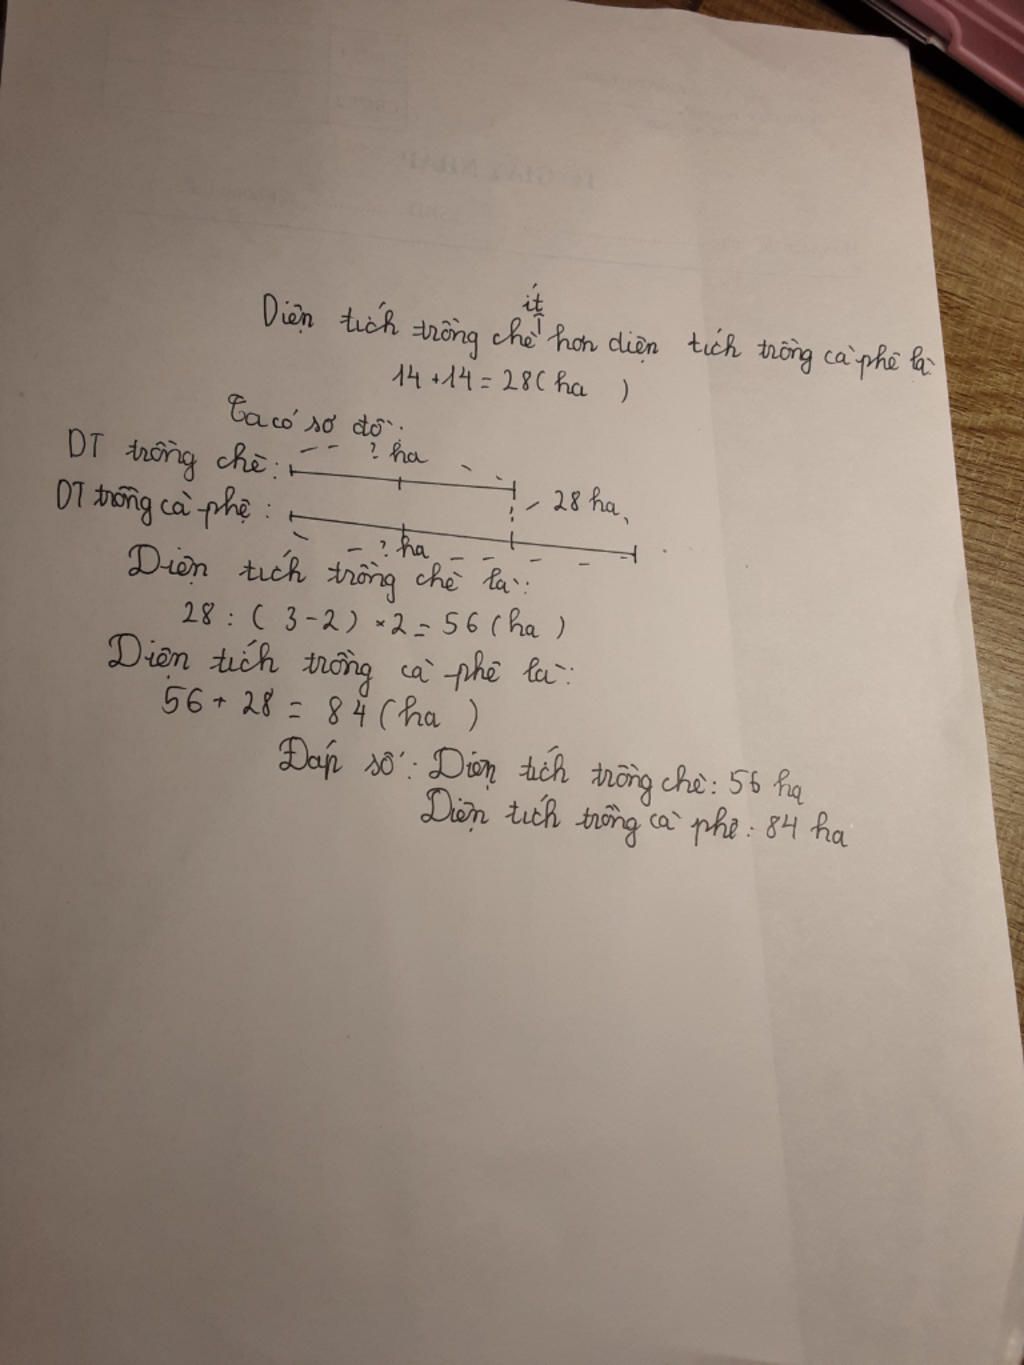 Diện tích trồng chè ít hơn diện tích trồng cà phê là:
14 + 14 = 28 ( ha )
Ta có sơ đồ:
? ha
DT trồng chè:
28 ha
DT trồng cà phê :
? ha
Diện tích trồng chè là:
28 : ( 3 - 2 ) × 2 = 56 ( ha )
Diện tích trồng cà phê là:
56 + 28 = 84 ( ha )
Đáp số: Diện tích trồng chè: 56 ha
Diện tích trồng cà phê: 84 ha